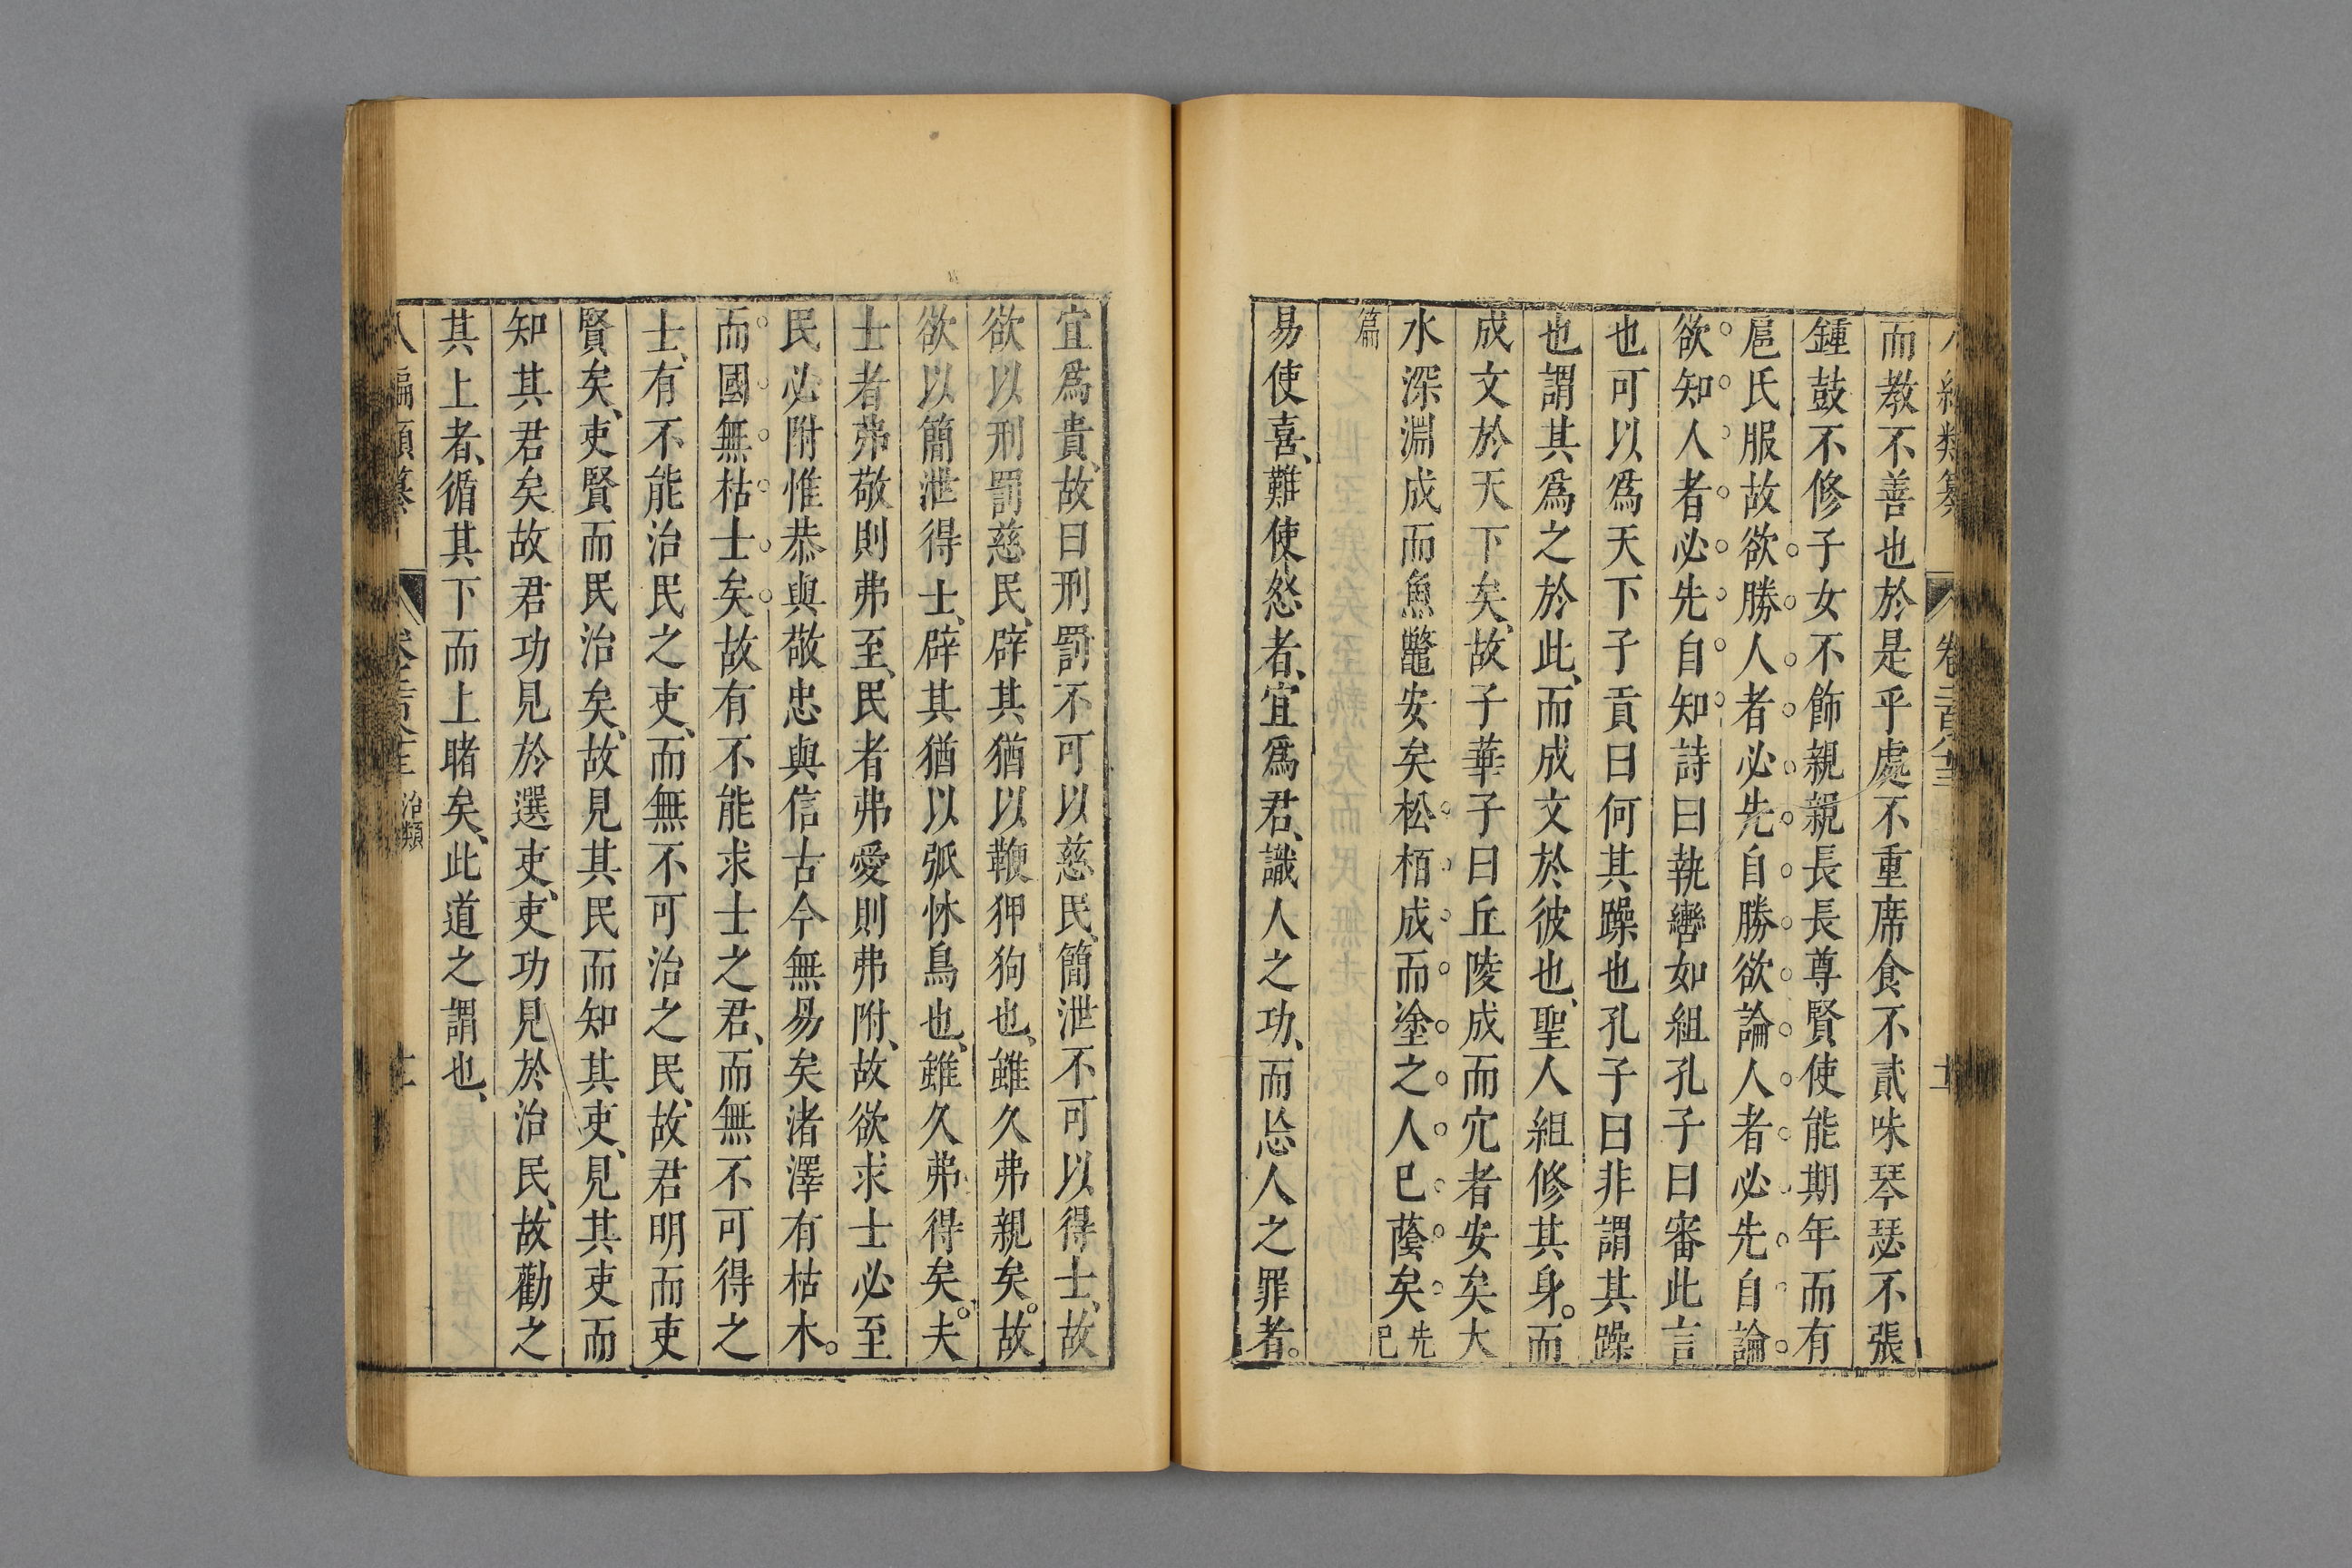 而教不善也於是乎處不重席食不貳味琴瑟不張
鍾鼓不修子女不飾親親長長尊賢使能期年而有
扈氏服故欲勝人者必先自勝欲論人者必先自論
欲知人者必先自知詩曰執轡如組孔子曰審此言
也可以爲天下子貢曰何其躁也孔子曰非謂其躁
也謂其爲之於此、而成文於彼也、聖人組修其身。而
成文於天下矣、故子華子曰丘陵成而穴者安矣大
水深淵成而魚鼈安矣松栢成而塗之人巳蔭矣先巳
篇
易使喜、難使怒者、宜爲君、識人之功、而忘人之罪者。
宜爲貴、故曰刑罰不可以慈民、簡泄不可以得士、故
欲以刑罰慈民、辟其猶以鞭狎狗也、雖久弗親矣。故
欲以簡泄得士、辟其猶以弧怵鳥也、雖久弗得矣。夫
士者弗敬則弗至、民者弗愛則弗附、故欲求士必至
民必附惟恭與敬忠與信古今無易矣渚澤有枯木。
而國無枯士矣故有不能求士之君、而無不可得之
士、有不能治民之吏、而無不可治之民、故君明而吏
賢矣、吏賢而民治矣、故見其民而知其吏、見其吏而
知其君矣故君功見於選吏、吏功見於治民、故勸之
其上者、循其下而上睹矣、此道之謂也、
治類